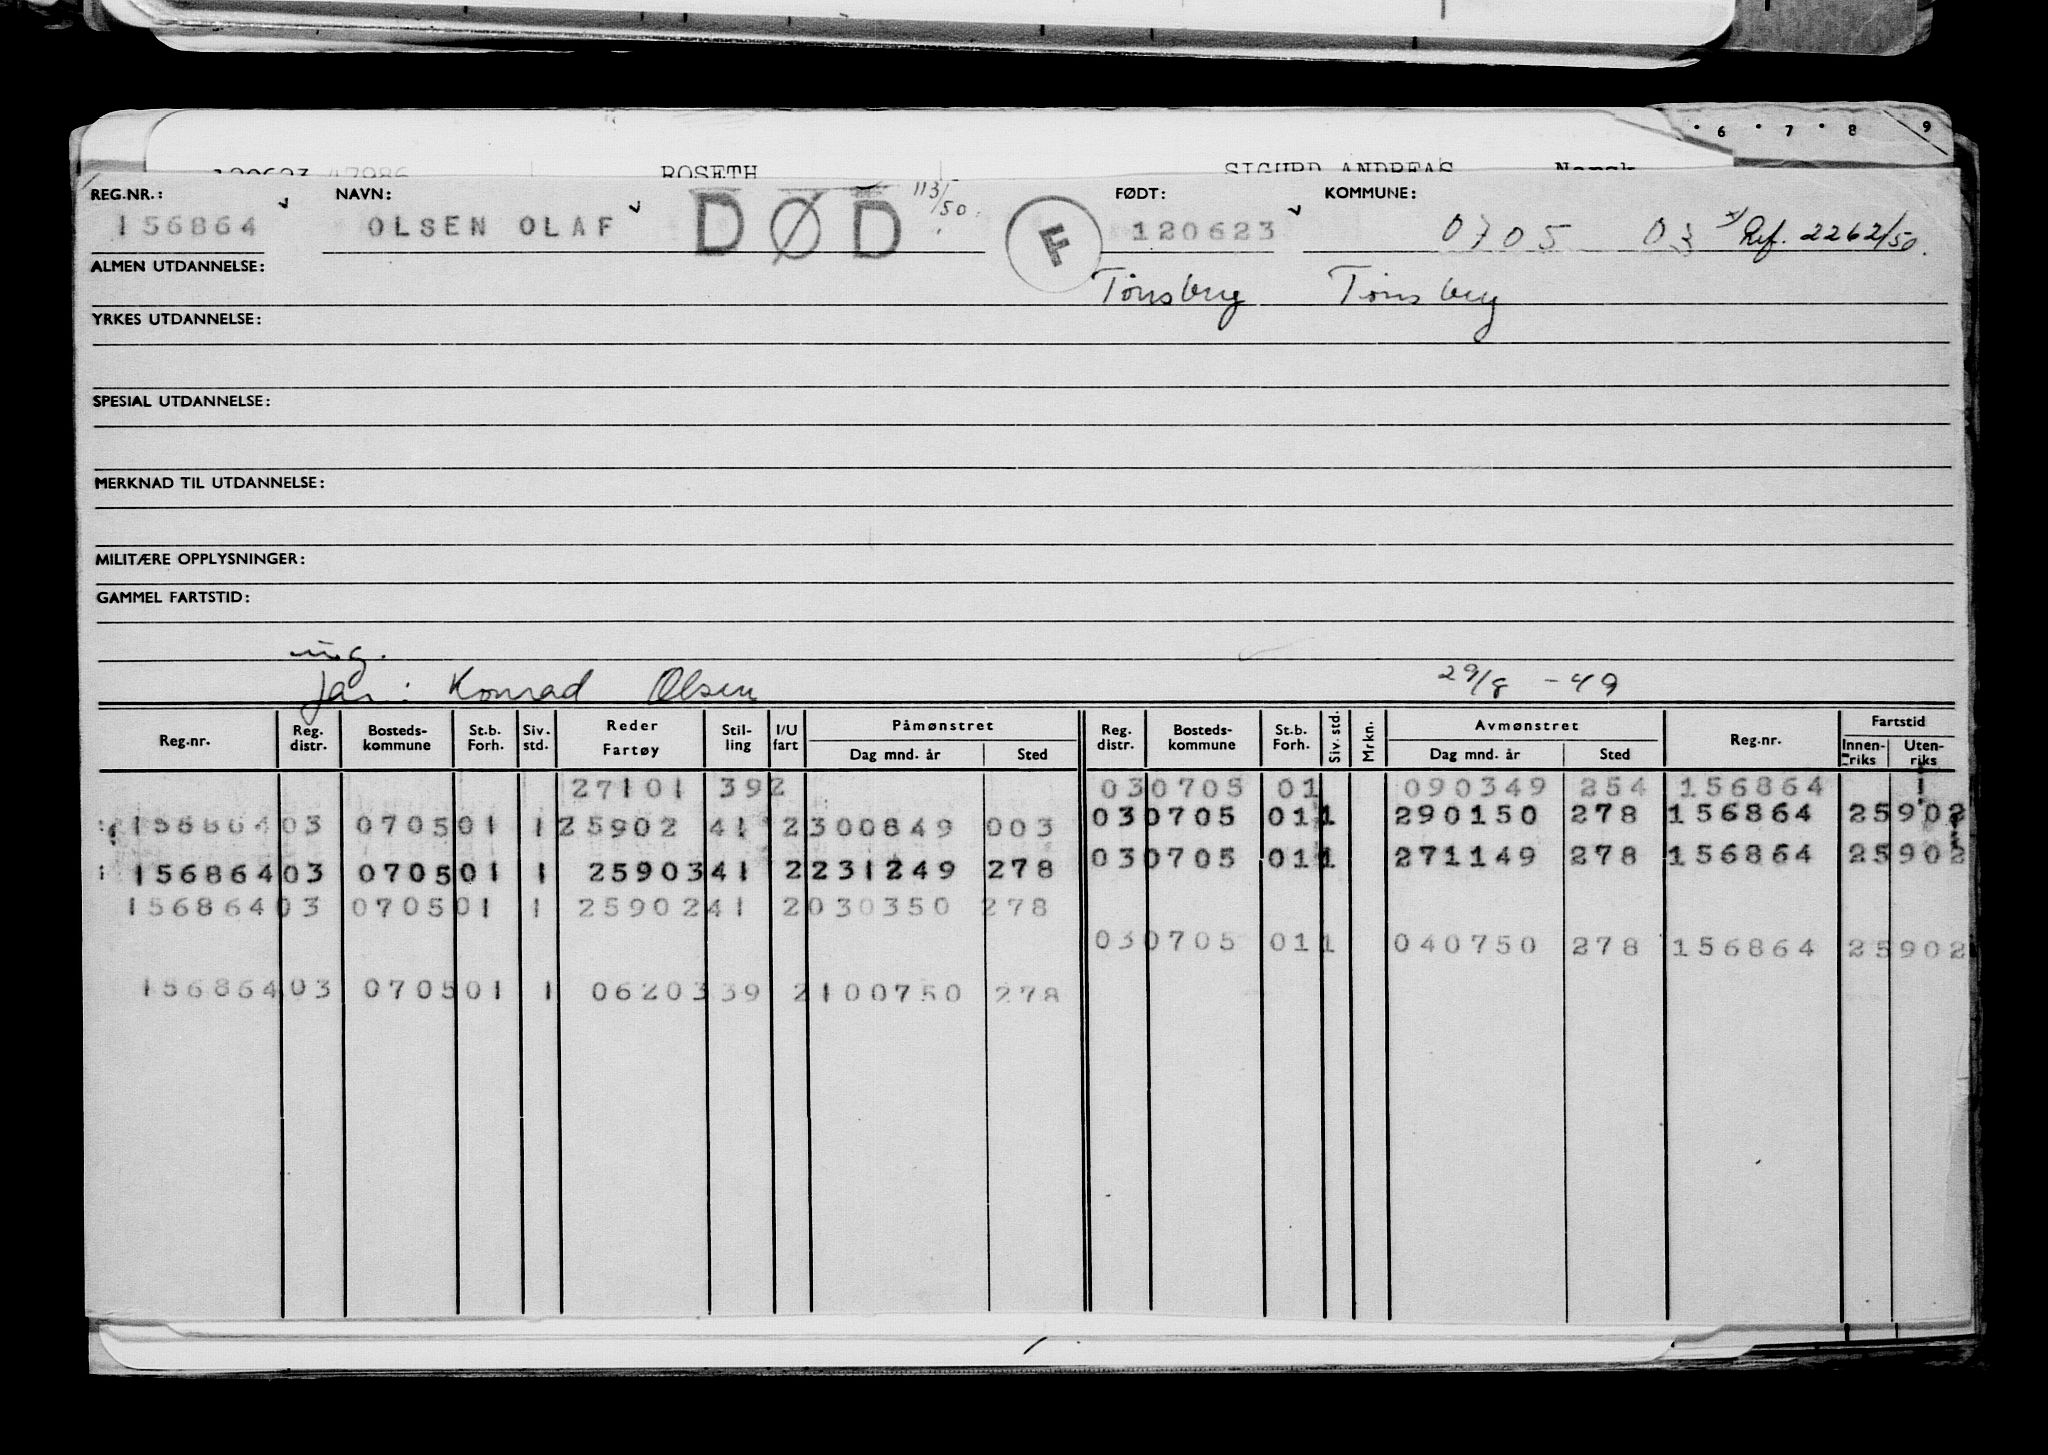 6 7 8 9
120623 47986 ROSETH SIGURD ANDREAS Norsk
REG.NR.: NAVN: FØDT: KOMMUNE:
156864 OLSEN OLAF DØD 113/50. F 120623 0705 03 x/ Ref. 2262/50.
ALMEN UTDANNELSE: Tönsberg Tönsberg
YRKES UTDANNELSE:
SPESIAL UTDANNELSE:
MERKNAD TIL UTDANNELSE:
MILITÆRE OPPLYSNINGER:
GAMMEL FARTSTID:
ug.
far: Konrad Olsen 29/8 -49
Reg.nr. Reg. distr. Bosteds-kommune St.b. Forh. Siv. std. Reder Fartøy Stil-ling I/U fart Påmønstret Dag mnd. år Sted Reg. distr. Bosteds-kommune St.b. Forh. Siv. std. Mrkn. Avmønstret Dag mnd. år Sted Reg.nr. Fartstid Innen-riks Uten-riks
27101 39 2 03 0705 01 090349 254 156864 1
156864 03 0705 01 1 25902 41 2 300849 003 03 0705 01 1 290150 278 156864 25902
156864 03 0705 01 1 25903 41 2 231249 278 03 0705 01 1 271149 278 156864 25902
156864 03 0705 01 1 25902 41 2 030350 278
03 0705 01 1 040750 278 156864 25902
156864 03 0705 01 1 06203 39 2 100750 278